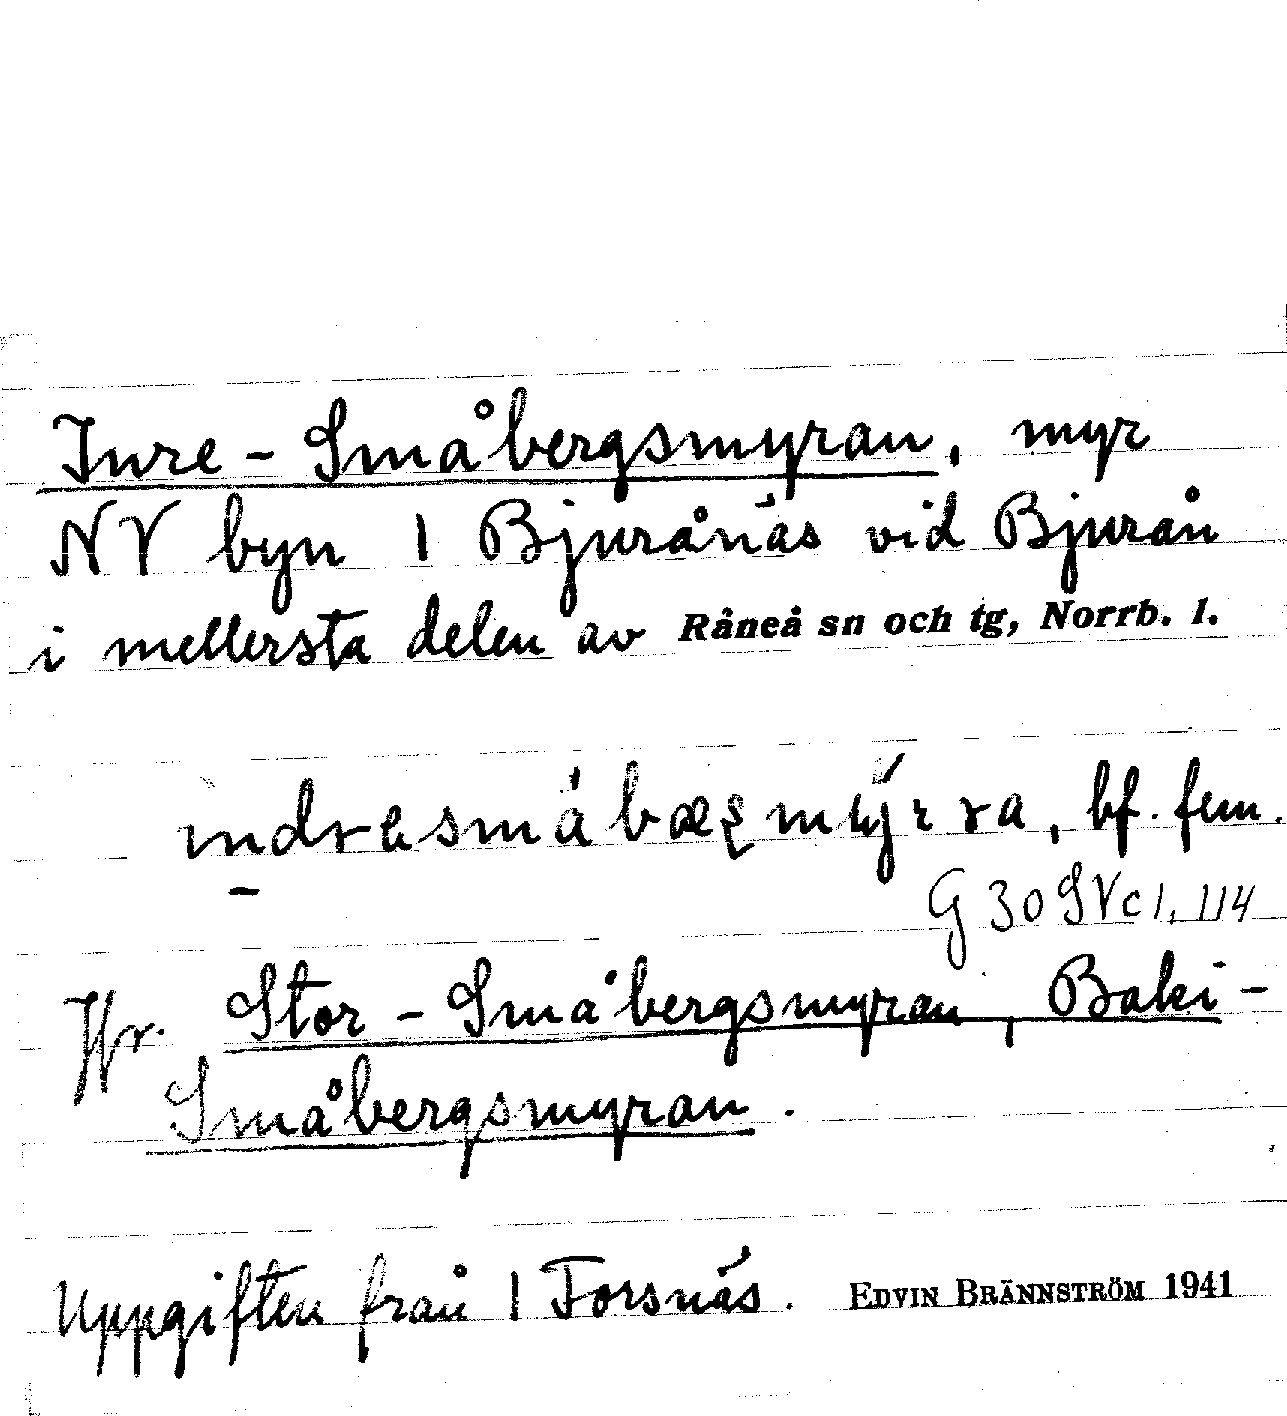 Inre - Småbergsmyran, myr
NV byn 1 Bjurånäs vid Bjurån
i mellersta delen av Råneå sn och tg, Norrb. l.
bf. fem.
G 30 SV c 1, 114
Hr. Stor - Småbergsmyran, Baki -
Småbergsmyran.
Uppgiften från 1 Forsnäs. EDVIN BRÄNNSTRÖM 1941